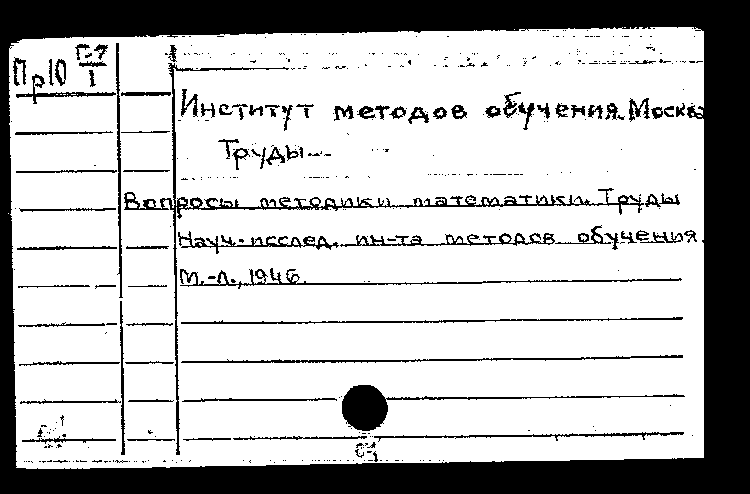 Пр10 П-7/1
Институт методов обучения. Москва
Труды...
Вопросы методики математики. Труды
Науч.-исслед. ин-та методов обучения.
М.-Л., 1946.